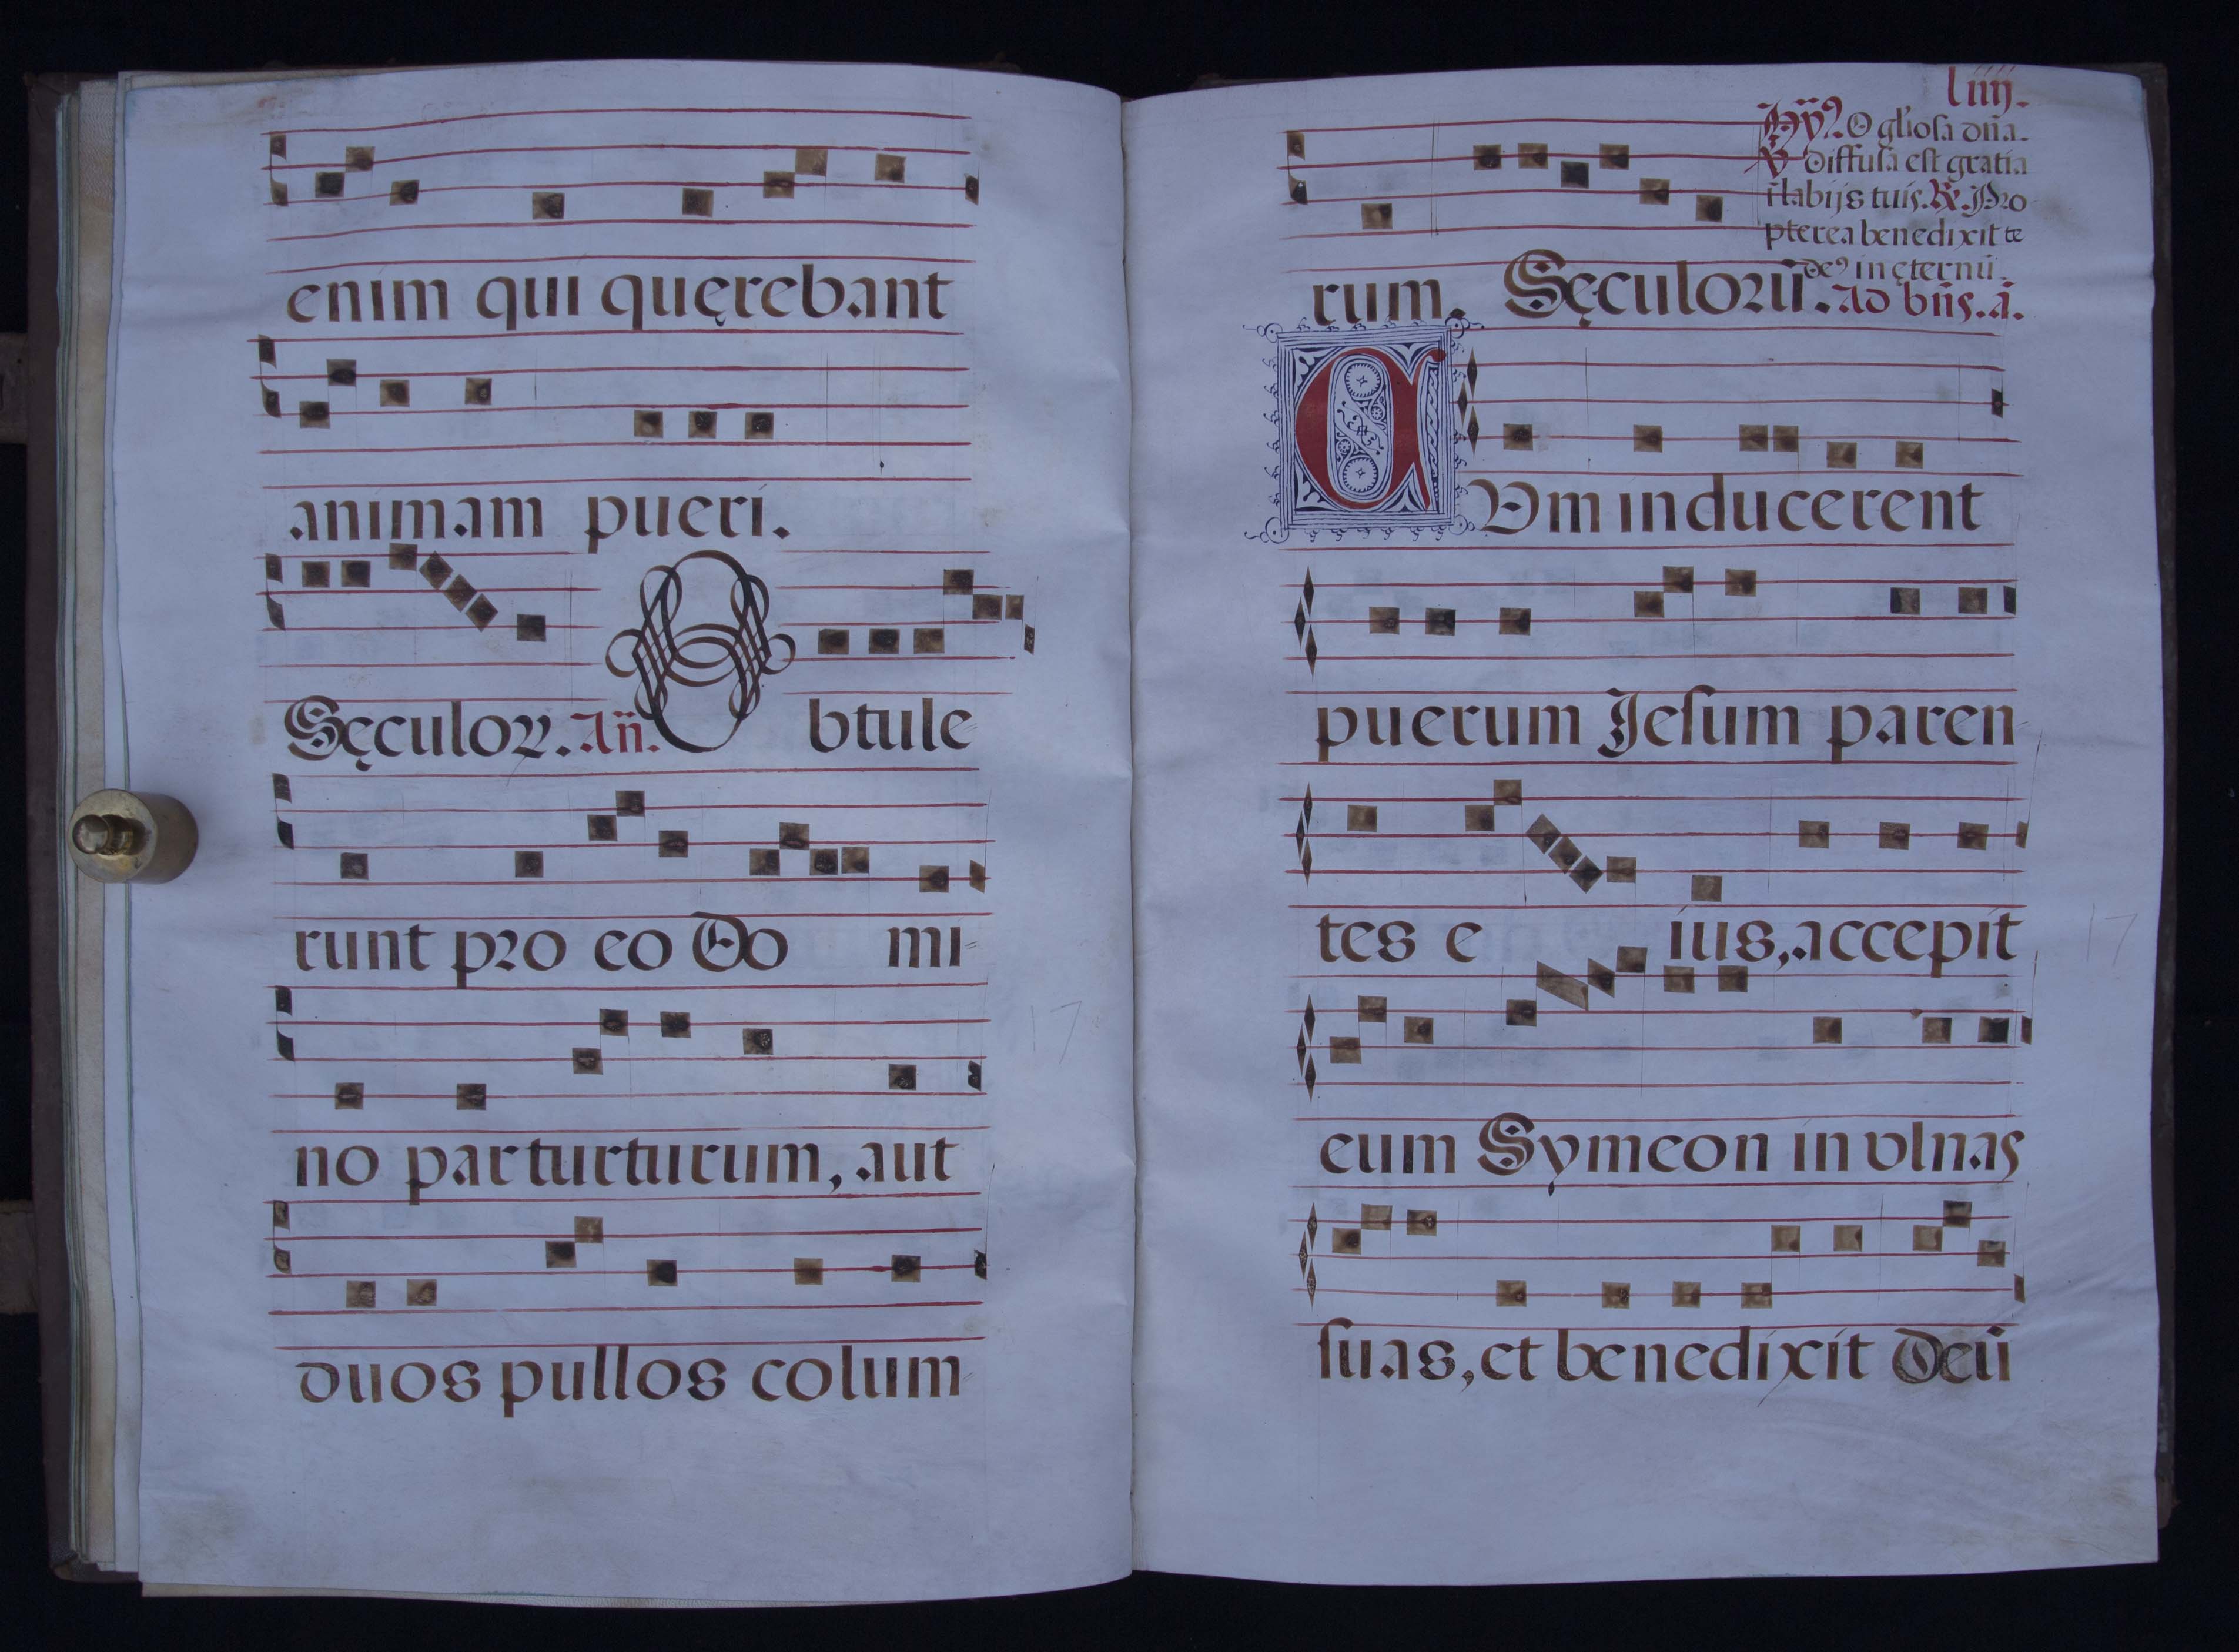 enim qui quęrebant
animam pueri.
Sęculoꝝ. Añ. Obtule
runt pro eo Do mi
no par turturum, aut
duos pullos colum
17
liiij.
Hy̆ꝰ. O gl'iosa dña.
℣ Diffusa est gratia
ī labijs tuis. ℟. Pro
pterea benedixit te
deꝰ in ęternū.
rum. Sęculorū. Ad bñs. ā.
CVm inducerent
puerum Jesum paren
tes e ius, accepit
eum Symeon in vlnas
suas, et benedixit Deū
17